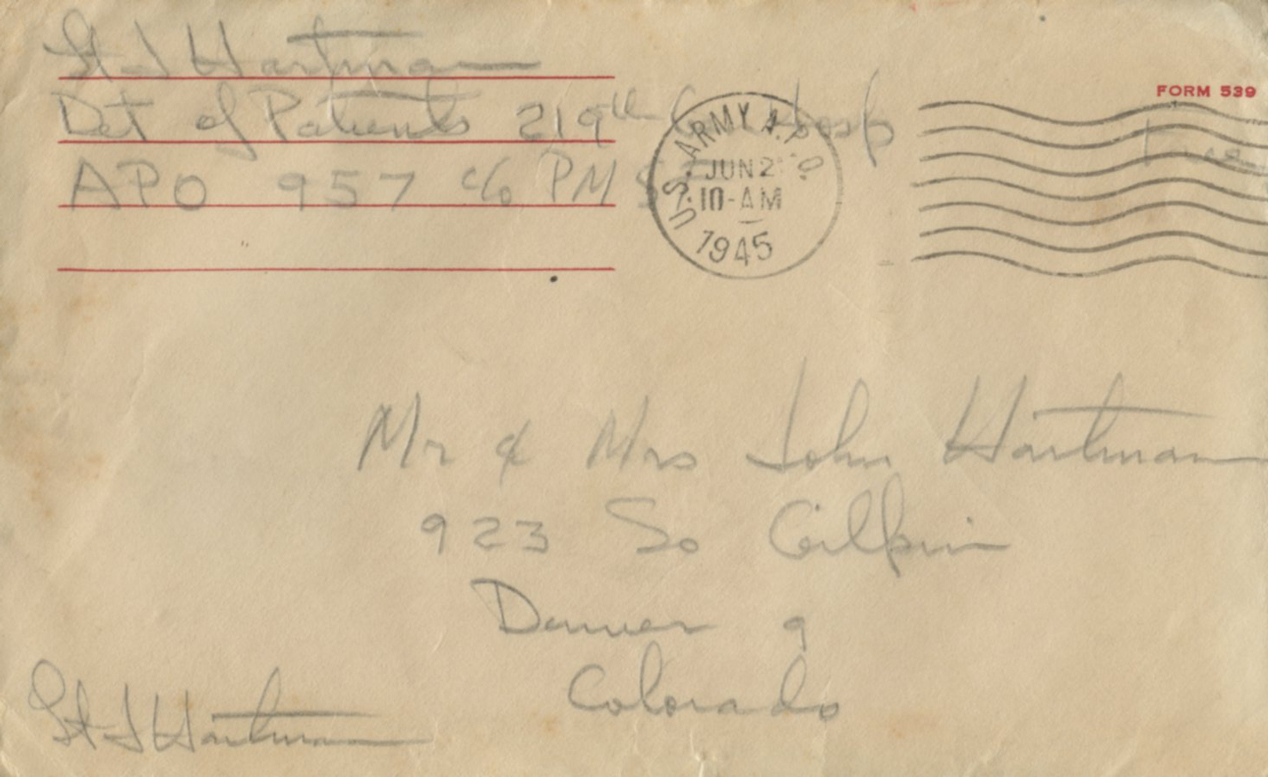 Lt J Hartman
Det of Patients 219th G Hosp
APO 957 c/o PM SF
U.S. ARMY A.P.O.
JUN 2
10-AM
1945
FORM 539
Free
Mr & Mrs John Hartman
923 So Gilpin
Denver 9
Colorado
Lt J Hartman